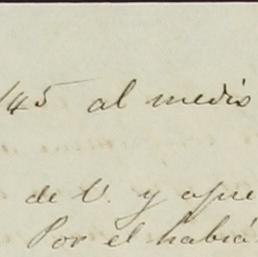 145 al medio
de V. y aprе
Por el habrá